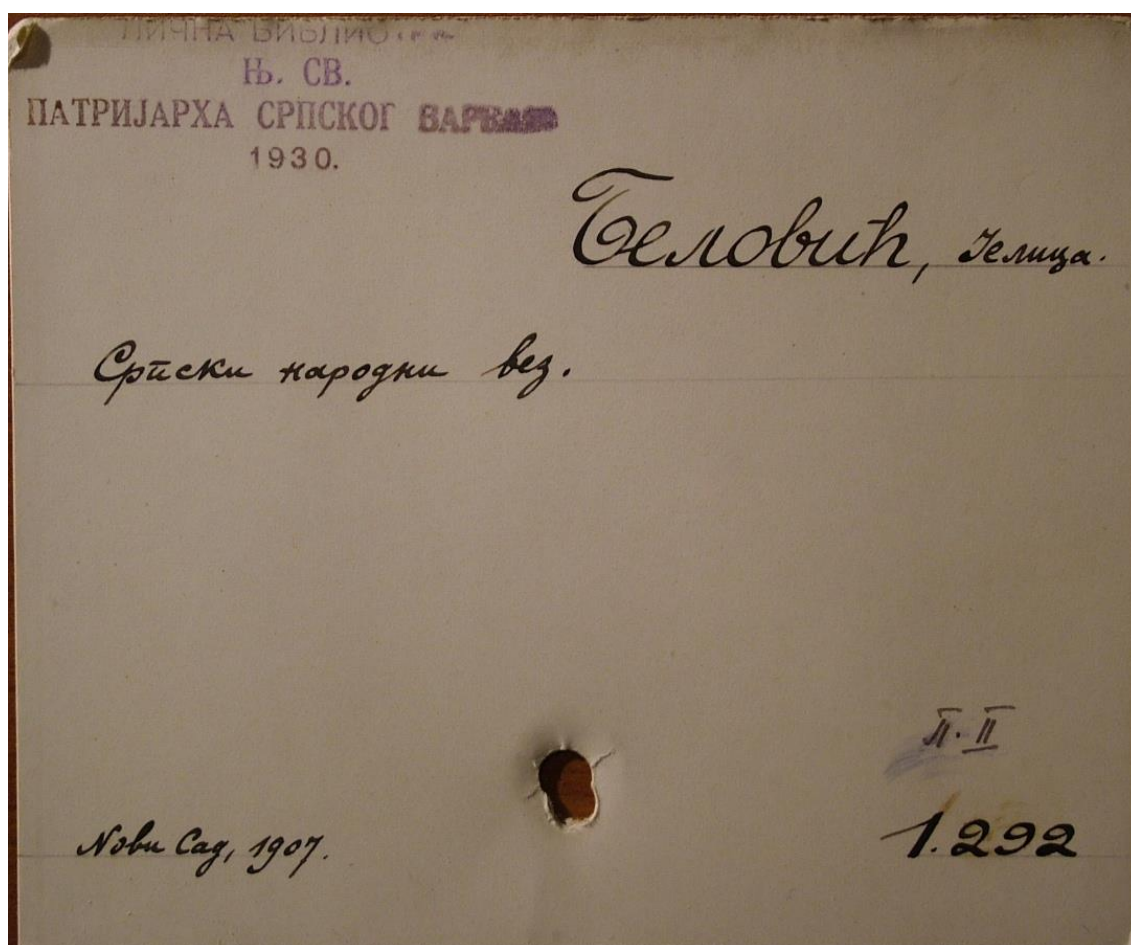 ЛИЧНА
Њ. СВ.
ПАТРИЈАРХА СРПСКОГ
1930.
Беловић, Јелица.
Српски народни вез.
П. II
Нови Сад, 1907.
1.292